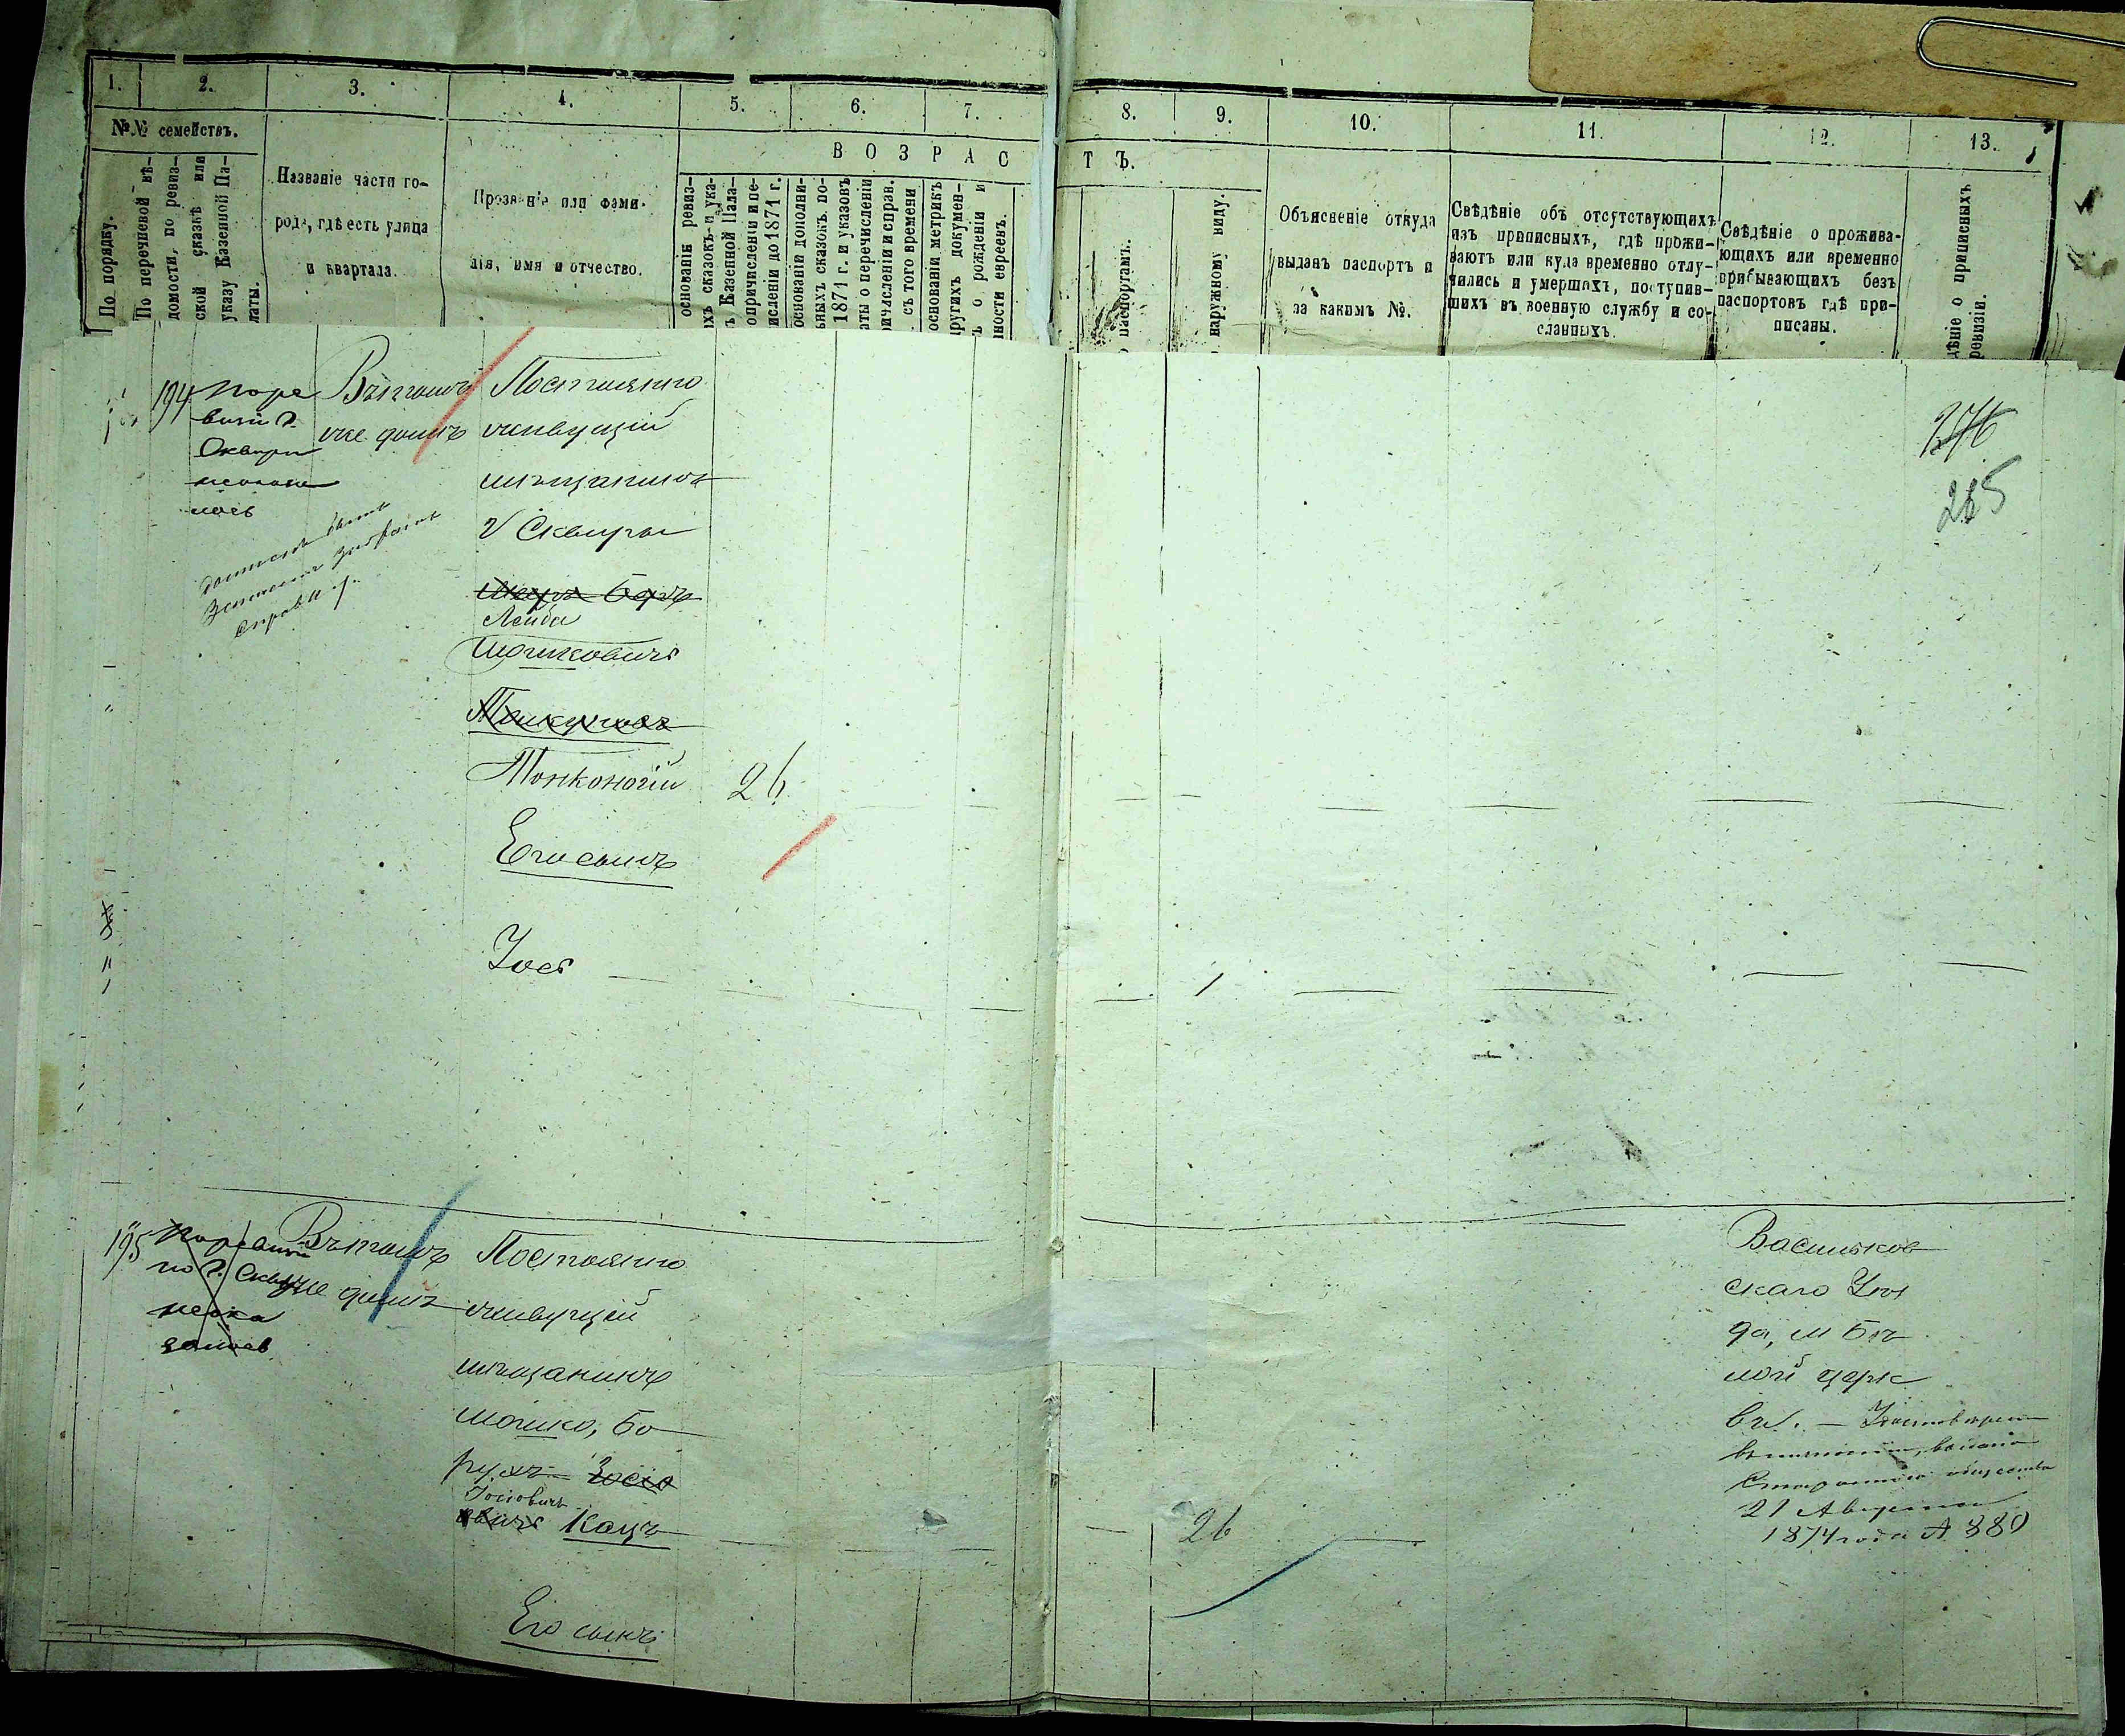 1.
2.
3.
4.
5.
6.
7.
8.
9.
10.
11.
12.
13.
№.№ семействъ.
По порядку.
По перечневой вѣ-
домости, по ревиз-
ской сказкѣ или
указу Казенной Па-
латы.
Названіе части го-
рода, гдѣ есть улица
и квартала.
Прозваніе или фами-
лія, имя и отчество.
ВОЗРАС
основаніи ревиз-
хъ сказокъ и ука-
ъ Казенной Пала-
о причисленіи и пе-
исленіи до 1871 г.
основаніи дополни-
ьныхъ сказокъ по-
1871 г. и указовъ
аты о перечисленіи
ричисленіи и справ.
съ того времени
основаніи метрикъ
ругихъ докумен-
ъ о рожденіи и
ности евреевъ.
ТЪ.
о паспортамъ.
о наружному виду.
Объясненіе откуда
выданъ паспортъ и
за какимъ №.
Свѣдѣніе объ отсутствующихъ
изъ приписныхъ, гдѣ прожи-
ваютъ или куда временно отлу-
чились и умершихъ, поступив-
шихъ въ военную службу и со-
сланныхъ.
Свѣдѣніе о прожива-
ющихъ или временно
прибывающихъ безъ
паспортовъ гдѣ при-
писаны.
дѣніе о приписныхъ
ревизіи.
194
Въ томъ
же домѣ
Постоянно
живущій
мѣщанинъ
г Сквиры
Лейба
Мошковичъ
Тонконогій
26
Его сынъ
Іось
1
276
285
195
Въ томъ
же домѣ
Постоянно
живущій
мѣщанинъ
Мошко, Бо
рухъ
Іосіовичъ
Кацъ
26
Его сынъ
Васильков
скаго Уѣз
да, м Бѣ
лой церк
ви. —
21 Августа
1874 года № 880